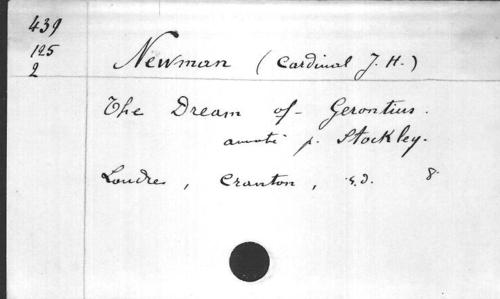 439
125
2
Newman (Cardinal J. H.)
The Dream of Gerontius.
annoté p. Stockley.
Londres, Cranton, s.d. 8